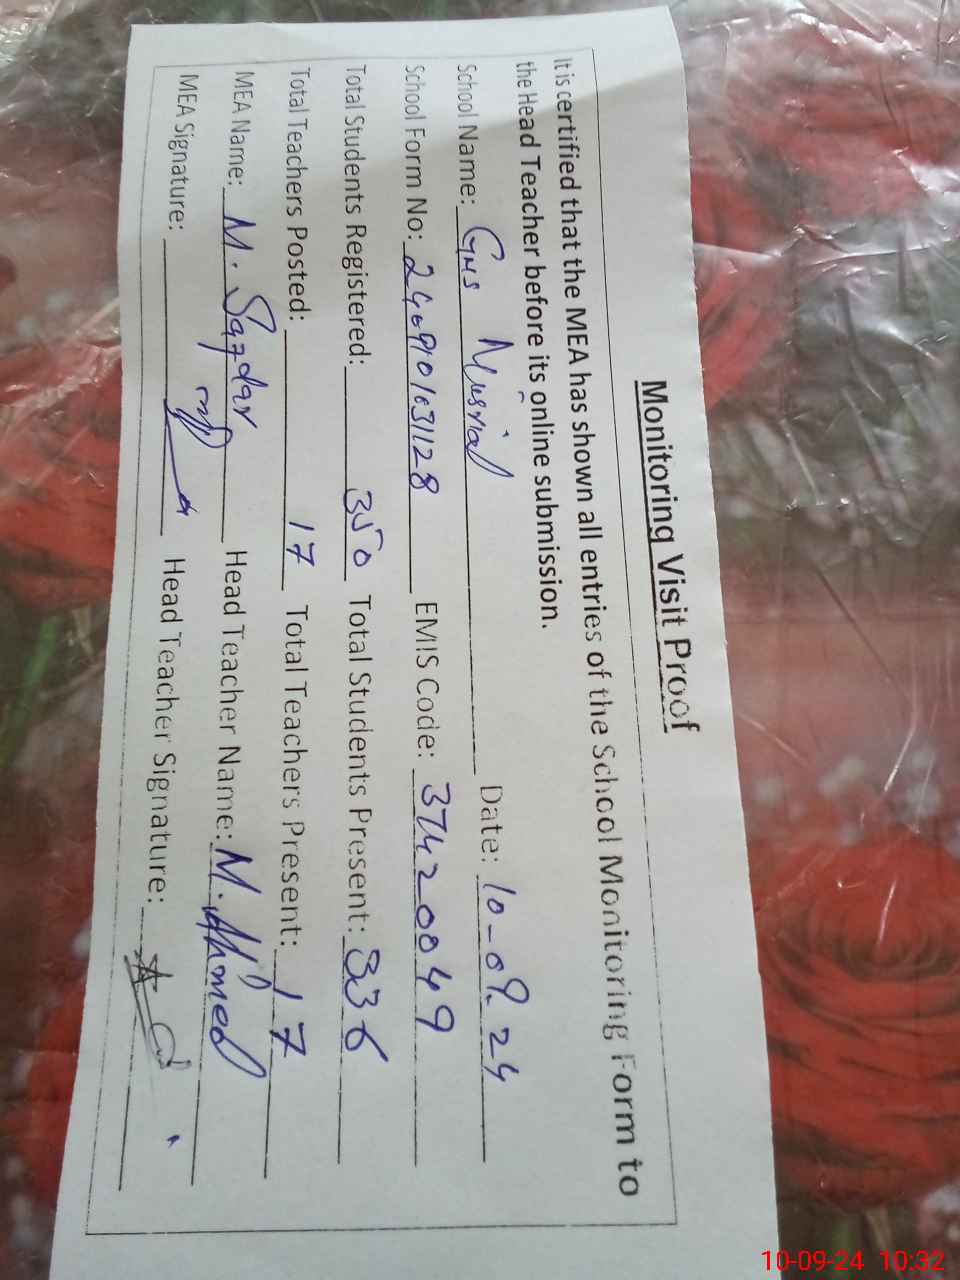 Monitoring Visit Proof
It is certified that the MEA has shown all entries of the School Monitoring Form to
the Head Teacher before its online submission.
School Name: GHS Date: 10-09-24
School Form No: EMIS Code: 37420049
Total Students Registered: 350 Total Students Present: 336
Total Teachers Posted: 17 Total Teachers Present: 17
MEA Name: M. Head Teacher Name: M. Ahmed
MEA Signature: Head Teacher Signature:
10-09-24 10:32